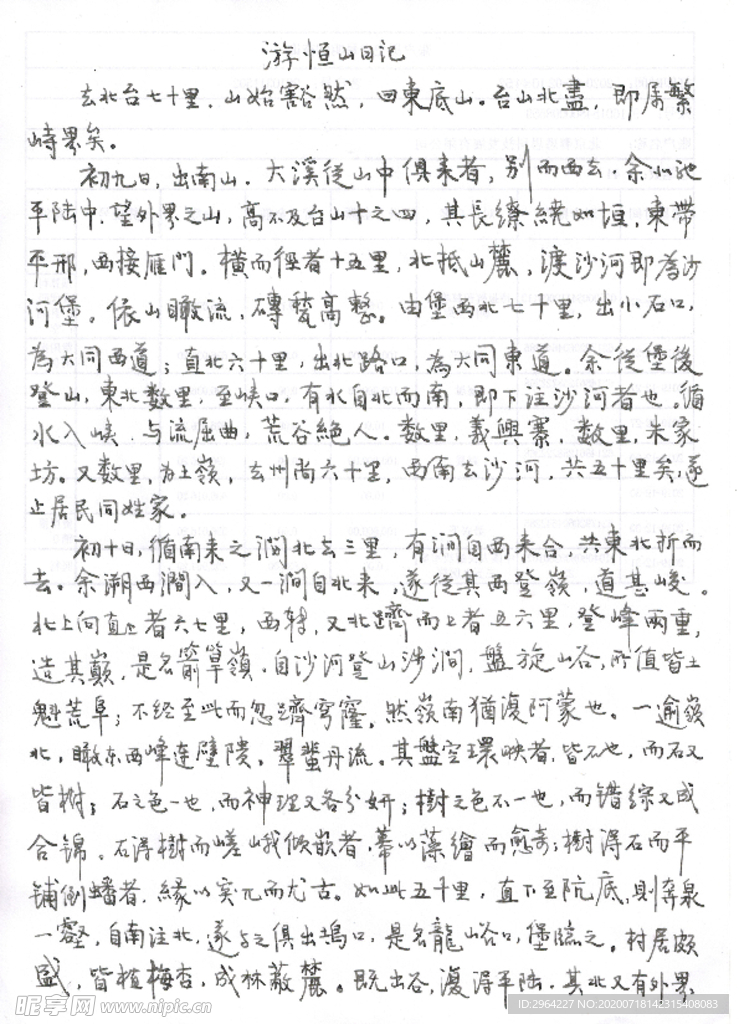 游恒山日记
去北台七十里，山始豁然，曰東底山。台山北盡，即属繁
峙界矣。
初九日，出南山。大溪從山中俱来者，别而西去。余北馳
平陆中，望外界之山，高不及台山十之四，其長繚繞如垣，東帶
平邢，西接雁門。橫而徑者十五里，北抵山麓，渡沙河即為沙
河堡。依山瞰流，磚甃高整。由堡西北七十里，出小石口，
為大同西道；直北六十里，出北路口，為大同東道。余從堡後
登山，東北数里，至峡口，有水自北而南，即下注沙河者也。循
水入峡，与流屈曲，荒谷絶人。数里，義興寨。数里，朱家
坊。又数里，为土嶺，去州尚六十里，西南去沙河，共五十里矣，遂
止居民同姓家。
初十日，循南来之澗北去三里，有澗自西来合，共東北折而
去。余溯西澗入，又一澗自北来，遂從其西登嶺，道甚峻。
北上向直上者六七里，西转，又北躋而上者五六里，登峰兩重，
造其巔，是名箭筸嶺。自沙河登山涉澗，盤旋山谷，所值皆土
魁荒阜；不经至此而忽躋穹窿，然嶺南猶復阿蒙也。一逾嶺
北，瞰东西峰連壁隤，翠蜚丹流。其盤空環映者，皆石也，而石又
皆樹；石之色一也，而神理又各分妍；樹之色不一也，而错綜又成
合锦。石得樹而嵯峨傾嵌者，幕以藻繪而愈奇；樹得石而平
铺倒蟠者，緣以突兀而尤古。如此五十里，直下至阬底，則奔泉
一壑，自南注北，遂与之俱出塢口，是名龍峪口，堡臨之。村居頗
盛，皆植梅杏，成林蔽麓。既出谷，復得平陆。其北又有外界
昵享网 www.nipic.cn
ID:2964227 NO:20200718142315408083